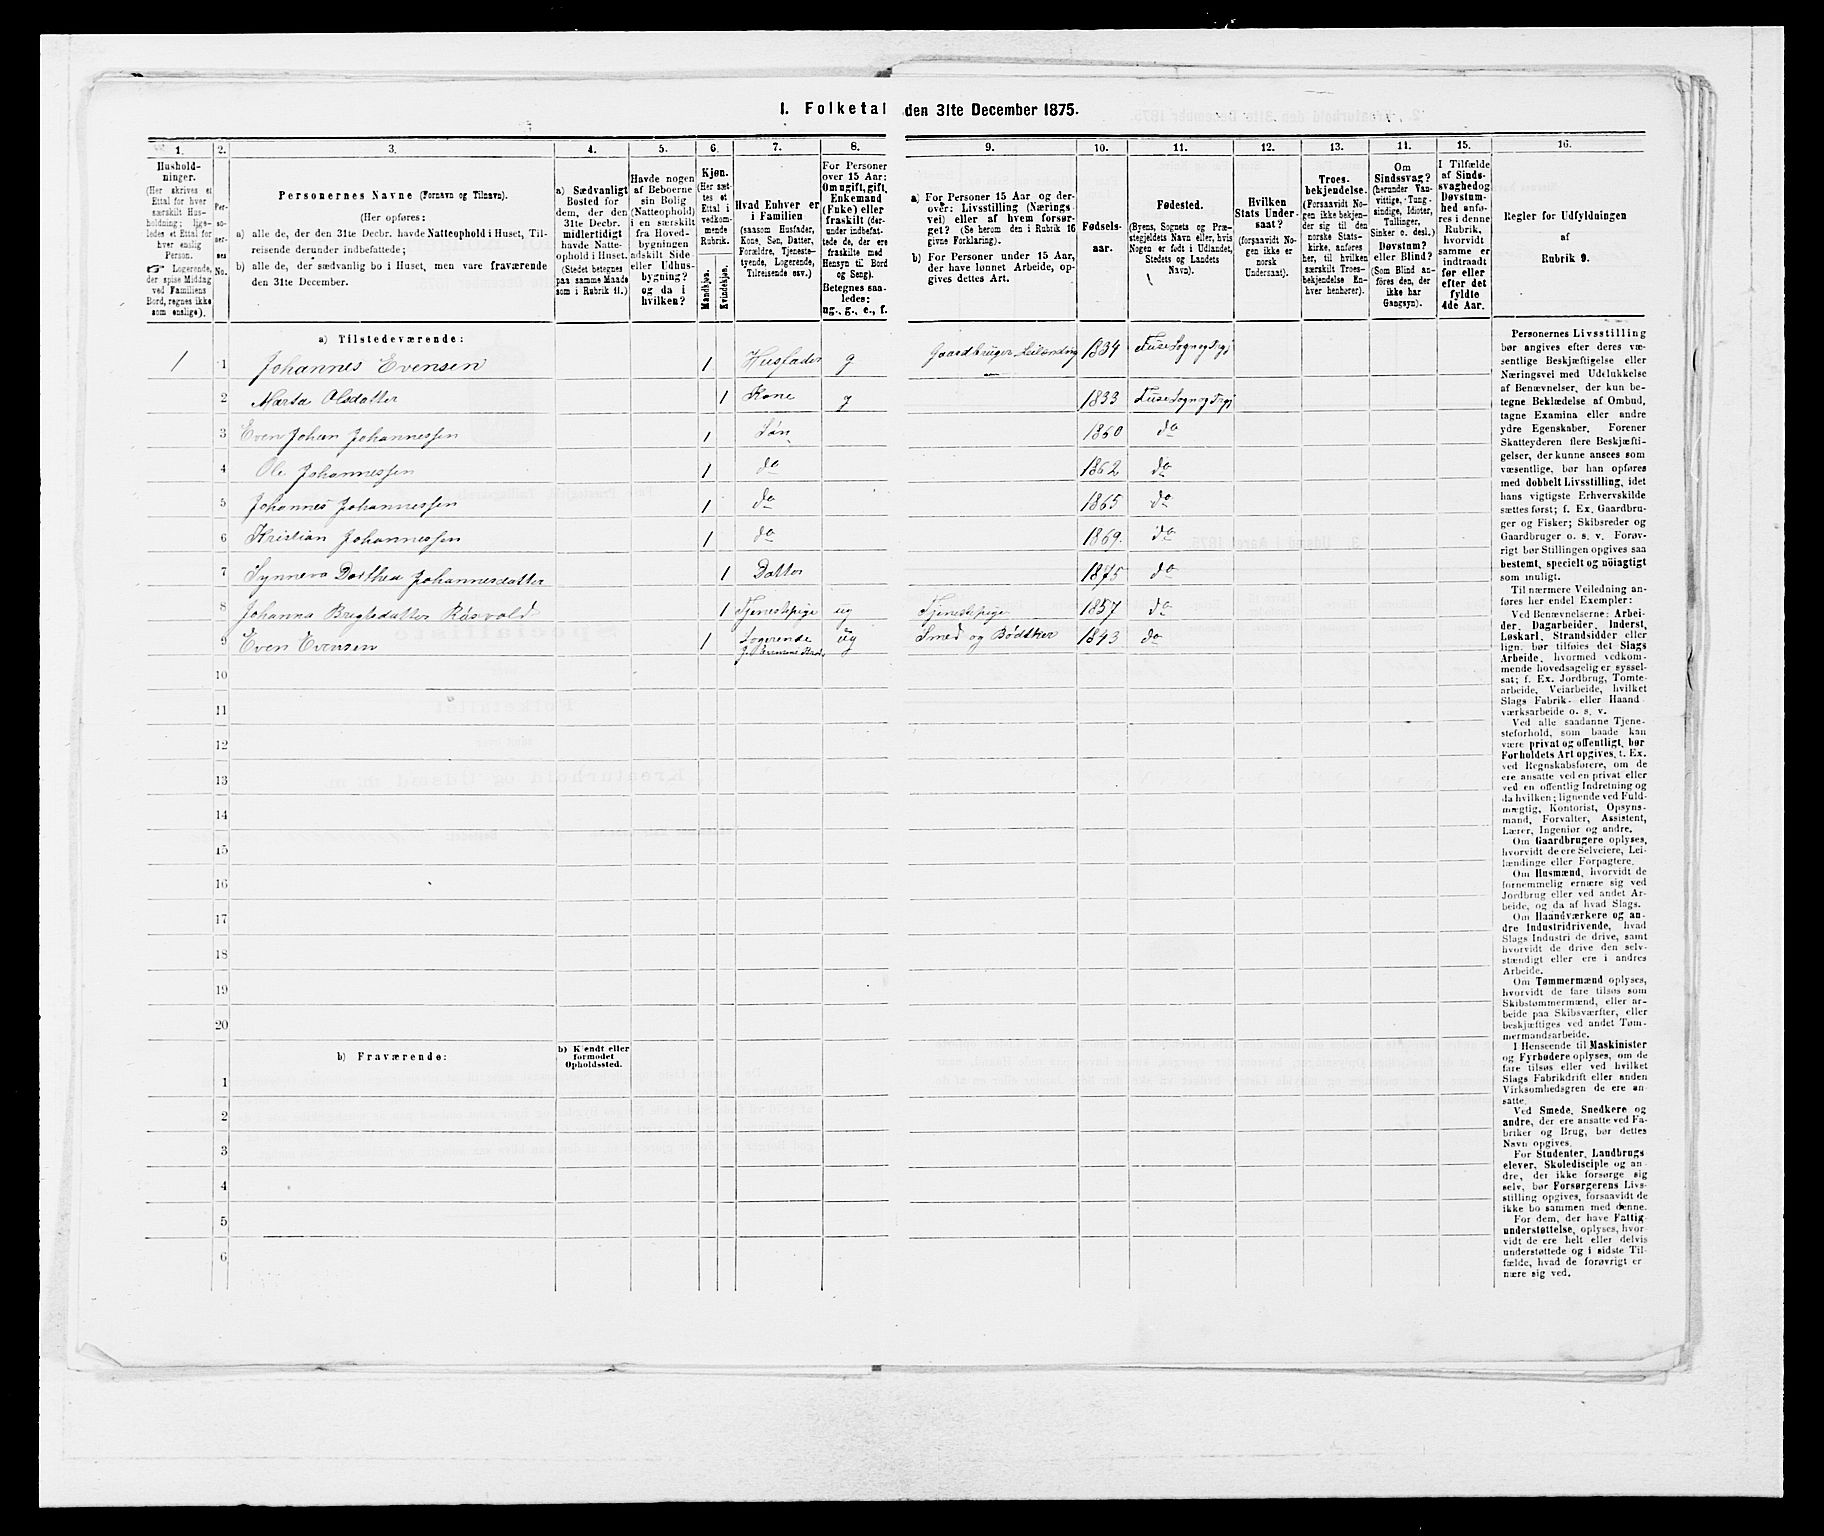 1. Folketal den 31te December 1875.
1.
2.
3.
4.
5.
6.
7.
8.
9.
10.
11.
12.
13.
11.
15.
16.
Hushold-
ninger.
(Her skrives et
Ettal for hver
særskilt Hus-
holdning; lige-
ledes et Ettal for
hver enslig
Person.
☞ Logerende,
der spise Middag
ved Familiens
Bord, regnes ikke
som enslige).
Per-
so-
ner-
nes
No.
Personernes Navne (Fornavn og Tilnavn).
(Her opføres:
a) alle de, der den 31te Decbr. havde Natteophold i Huset, Til-
reisende derunder indbefattede;
b) alle de, der sædvanlig bo i Huset, men vare fraværende
den 31te December.
a) Sædvanligt
Bosted for
dem, der den
31te Decbr.
midlertidigt
havde Natte-
ophold i Huset.
(Stedet betegnes
paa samme Maade
som i Rubrik 11.)
Havde nogen
af Beboerne
sin Bolig
(Natteophold)
i en særskilt
fra Hoved-
bygningen
adskilt Side-
eller Udhus-
bygning?
og da i
hvilken?
Kjøn.
(Her sæt-
tes et
Ettal i
vedkom-
mende
Rubrik.
Mandkjøn.
Kvindekjøn.
Hvad Enhver er
i Familien
(saasom Husfader,
Kone, Søn, Datter,
Forældre, Tjeneste-
tyende, Logerende,
Tilreisende osv.)
For Personer
over 15 Aar:
Om ugift, gift,
Enkemand
(Enke) eller
fraskilt (der-
under indbefat-
tede de, der ere
fraskilte med
Hensyn til Bord
og Seng).
Betegnes saa-
ledes:
ug., g., e., f.
a) For Personer 15 Aar og der-
over: Livsstilling (Nærings-
vei) eller af hvem forsør-
get? (Se herom den i Rubrik 16
givne Forklaring).
b) For Personer under 15 Aar,
der have lønnet Arbeide, op-
gives dettes Art.
Fødsels-
aar.
Fødested.
(Byens, Sognets og Præ-
stegjeldets Navn eller, hvis
Nogen er født i Udlandet,
Stedets og Landets
Navn).
Hvilken
Stats Under-
saat?
(forsaavidt No-
gen ikke er
norsk
Undersaat).
Troes-
bekjendelse.
(Forsaavidt No-
gen ikke bekjen-
der sig til den
norske Stats-
kirke, anføres
her, til hvilken
særskilt Troes-
bekjendelse En-
hver henhører).
Om
Sindssvag?
(herunder Van-
vittige, Tung-
sindige, Idioter,
Tullinger,
Sinker o. desl.)
Døvstum?
eller Blind?
(Som Blind an-
føres den, der
ikke har
Gangsyn).
I Tilfælde
af Sinds-
svaghed og
Døvstum-
hed anfø-
res i denne
Rubrik,
hvorvidt
samme er
indtraadt
før eller
efter det
fyldte
4de Aar.
Regler for Udfyldningen
af
Rubrik 9.
a) Tilstedeværende:
1 1 Johannes Evensen 1 Husfader g Gaardbruger Leilænding 1834 Fuse Sogn og Prgj
2 Marta Olsdatter 1 Kone g 1833 Fuse Sogn og Prgj
3 Even Johan Johannessen 1 Søn 1860 do
4 Ole Johannessen 1 do 1862 do
5 Johannes Johannessen 1 do 1865 do
6 Kristian Johannessen 1 do 1869. do
7 Synneva Dorthea Johannesdatter 1 Datter 1875 do
8 Johanna Brygtesdatter 1 Tjenestepige ug Tjenestepige 1857 do
9 Even Evensen 1 Logerende ug Smed og Bødtker 1843 do
10
11
12
13
14
15
16
17
18
19
20
b) Fraværende:
b) Kjendt eller
formodet
Opholdssted.
1
2
3
4
5
6
Personernes Livsstilling
bør angives efter deres væ-
sentlige Beskjæftigelse eller
Næringsvei med Udelukkelse
af Benævnelser, der kun be-
tegne Beklædelse af Ombud,
tagne Examina eller andre
ydre Egenskaber. Forener
Skatteyderen flere Beskjæfti-
gelser, der kunne ansees som
væsentlige, bør han opføres
med dobbelt Livsstilling, idet
hans vigtigste Erhvervskilde
sættes først; f. Ex. Gaardbru-
ger og Fisker; Skibsreder og
Gaardbruger o. s. v. Forøv-
rigt bør Stillingen opgives saa
bestemt, specielt og nöiagtigt
som muligt.
Til nærmere Veiledning an-
føres her endel Exempler:
Ved Benævnelserne: Arbei-
der, Dagarbeider, Inderst,
Løskarl, Strandsidder eller
lign. bør tilføies det Slags
Arbeide, hvormed vedkom-
mende hovedsagelig er syssel-
sat; f. Ex. Jordbrug, Tomte-
arbeide, Veiarbeide, hvilket
Slags Fabrik- eller Haand
værksarbeide o. s. v.
Ved alle saadanne Tjene-
steforhold, som baade kan
være privat og offentligt, bør
Forholdets Art opgives, t. Ex.
ved Regnskabsførere, om de
ere ansatte ved en privat eller
ved en offentlig Indretning og
da hvilken; lignende ved Fuld-
mægtig, Kontorist, Opsyns-
mand, Forvalter, Assistent,
Lærer, Ingeniør og andre.
Om Gaardbrugere oplyses,
hvorvidt de ere Selveiere, Lei-
lændinge eller Forpagtere.
Om Husmænd, hvorvidt de
fornemmelig ernære sig ved
Jordbrug eller ved andet Ar-
beide, og da af hvad Slags.
Om Haandværkere og an-
dre Industridrivende, hvad
Slags Industri de drive, samt
hvorvidt de drive den selv-
stændigt eller ere i andres
Arbeide.
Om Tømmermænd oplyses,
hvorvidt de fare tilsøs som
Skibstømmermænd, eller ar-
beide paa Skibsværfter, eller
beskjæftiges ved andet Tøm-
mermandsarbeide.
I Henseende til Maskinister
og Fyrbødere oplyses, om de
fare tilsøs eller ved hvilket
Slags Fabrikdrift eller anden
Virksomhedsgren de ere an-
satte.
Ved Smede, Snedkere og
andre, der ere ansatte ved Fa-
briker og Brug, bør dettes
Navn opgives.
For Studenter, Landbrugs
elever, Skoledisciple og an-
dre, der ikke forsørge sig
selv, bør Forsørgerens Livs-
stilling opgives, forsaavidt de
ikke bo sammen med denne.
For dem, der have Fattig-
understøttelse, oplyses, hvor-
vidt de ere helt eller delvis
understøttede og i sidste Til-
fælde, hvad de forøvrigt er
nære sig ved.